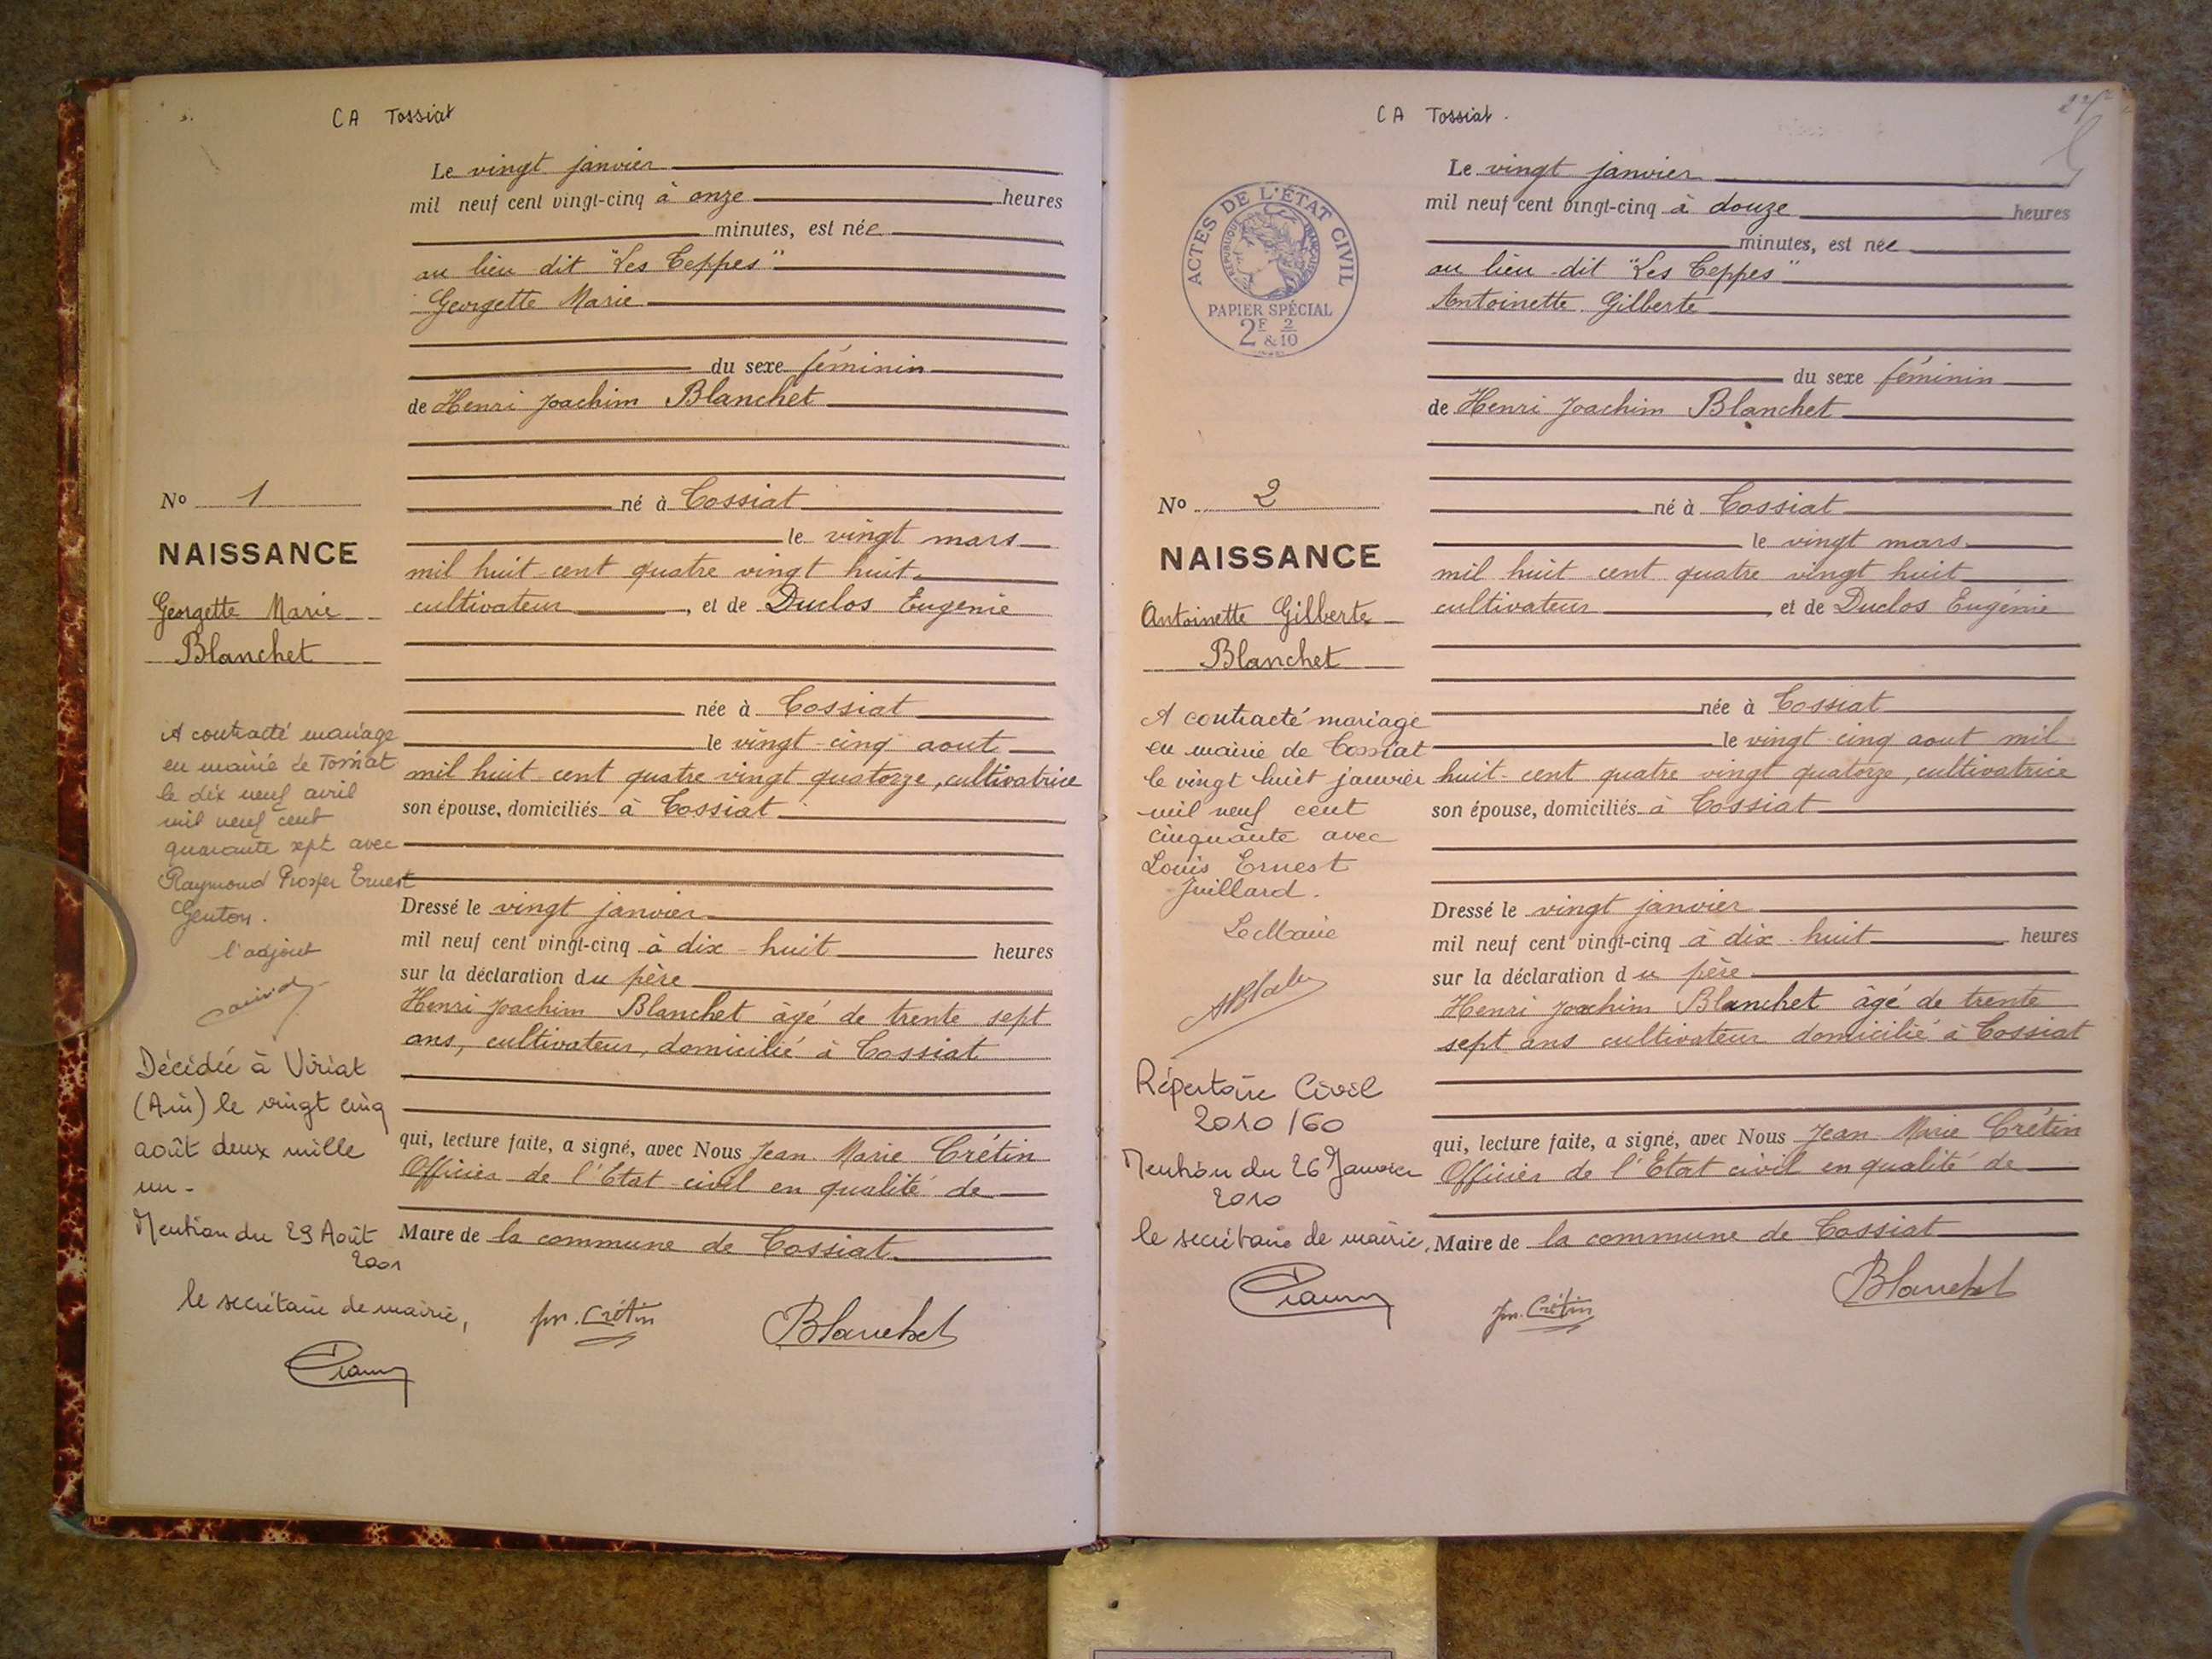 CA Tossiat
Le vingt janvier
mil neuf cent vingt-cinq à onze heures
minutes, est née
au lieu dit "Les Teppes"
Georgette Marie
du sexe féminin
de Henri Joachim Blanchet
né à Tossiat
le vingt mars
mil huit cent quatre vingt huit
cultivateur, et de Duclos Eugénie
née à Tossiat
le vingt-cinq aout
mil huit cent quatre vingt quatorze, cultivatrice
son épouse, domiciliés à Tossiat
Dressé le vingt janvier
mil neuf cent vingt-cinq à dix-huit heures
sur la déclaration du père
Henri Joachim Blanchet âgé de trente sept
ans, cultivateur, domicilié à Tossiat
qui, lecture faite, a signé, avec Nous Jean Marie Crétin
Officier de l'Etat civil en qualité de
Maire de la commune de Tossiat
Jm. Crétin
Blanchet
No 1
NAISSANCE
Georgette Marie
Blanchet
A contracté mariage
en mairie de Tossiat
le dix neuf avril
mil neuf cent
quarante sept avec
Raymond Prosper Ernest
Genton.
l'adjoint
Décédée à Viriat
(Ain) le vingt cinq
août deux mille
un -
Mention du 29 Août
2001
le secrétaire de mairie,
CA Tossiat.
Le vingt janvier
mil neuf cent vingt-cinq à douze heures
minutes, est née
au lieu-dit "Les Teppes"
Antoinette Gilberte
du sexe féminin
de Henri Joachim Blanchet
né à Tossiat
le vingt mars
mil huit cent quatre vingt huit
cultivateur, et de Duclos Eugénie
née à Tossiat
le vingt cinq aout mil
huit-cent quatre vingt quatorze, cultivatrice
son épouse, domiciliés à Tossiat
Dressé le vingt janvier
mil neuf cent vingt-cinq à dix huit heures
sur la déclaration du père
Henri Joachim Blanchet âgé de trente
sept ans cultivateur domicilié à Tossiat
qui, lecture faite, a signé, avec Nous Jean Marie Crétin
Officier de l'Etat civil en qualité de
Maire de la commune de Tossiat
Jm. Crétin
Blanchet
ACTES DE L'ÉTAT CIVIL
RÉPUBLIQUE FRANÇAISE
PAPIER SPÉCIAL
2F & 2/10
No 2
NAISSANCE
Antoinette Gilberte
Blanchet
A contracté mariage
en mairie de Tossiat
le vingt huit janvier
mil neuf cent
cinquante avec
Louis Ernest
Juillard.
Le Maire
Répertoire Civil
2010/60
Mention du 26 Janvier
2010
le secrétaire de mairie,